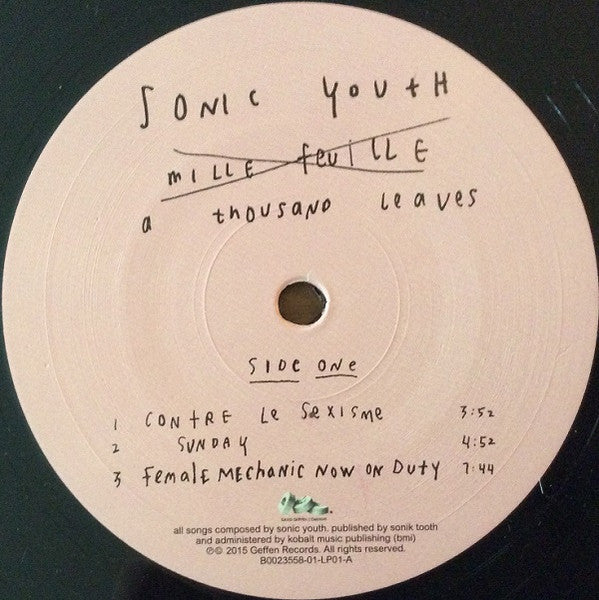 SONIC YOUTH
MILLE FEUILLE
a tHOUSAND Leaves
SIDE ONE
1 CONTRE Le SeXISme 3:52
2 SUNDAY 4:52
3 FemalE MEChanic NOW ON DUTY 7:44
all songs composed by sonic youth. published by sonik tooth
and administered by kobalt music publishing (bmi)
℗© 2015 Geffen Records. All rights reserved.
B0023558-01-LP01-A